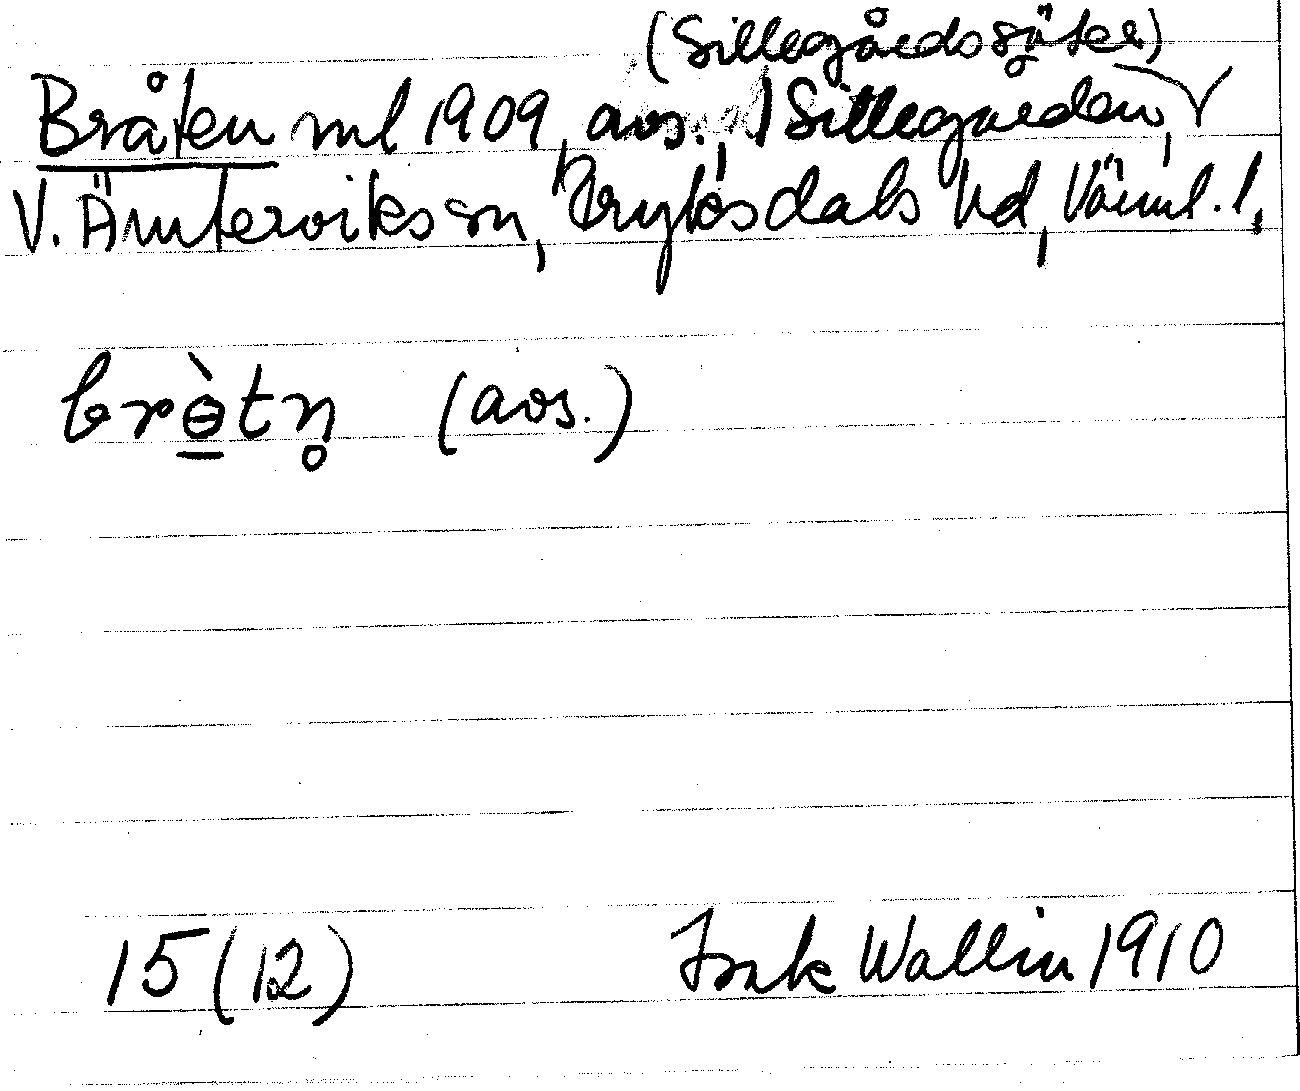 (Sillegårdssäter)
Bråten ml 1909, avs., Sillegården,
V. Ämterviks sn, Fryksdals hd, Värml. l.
brɵ̀tn̥ (avs.)
15 (12) Isak Wallin 1910